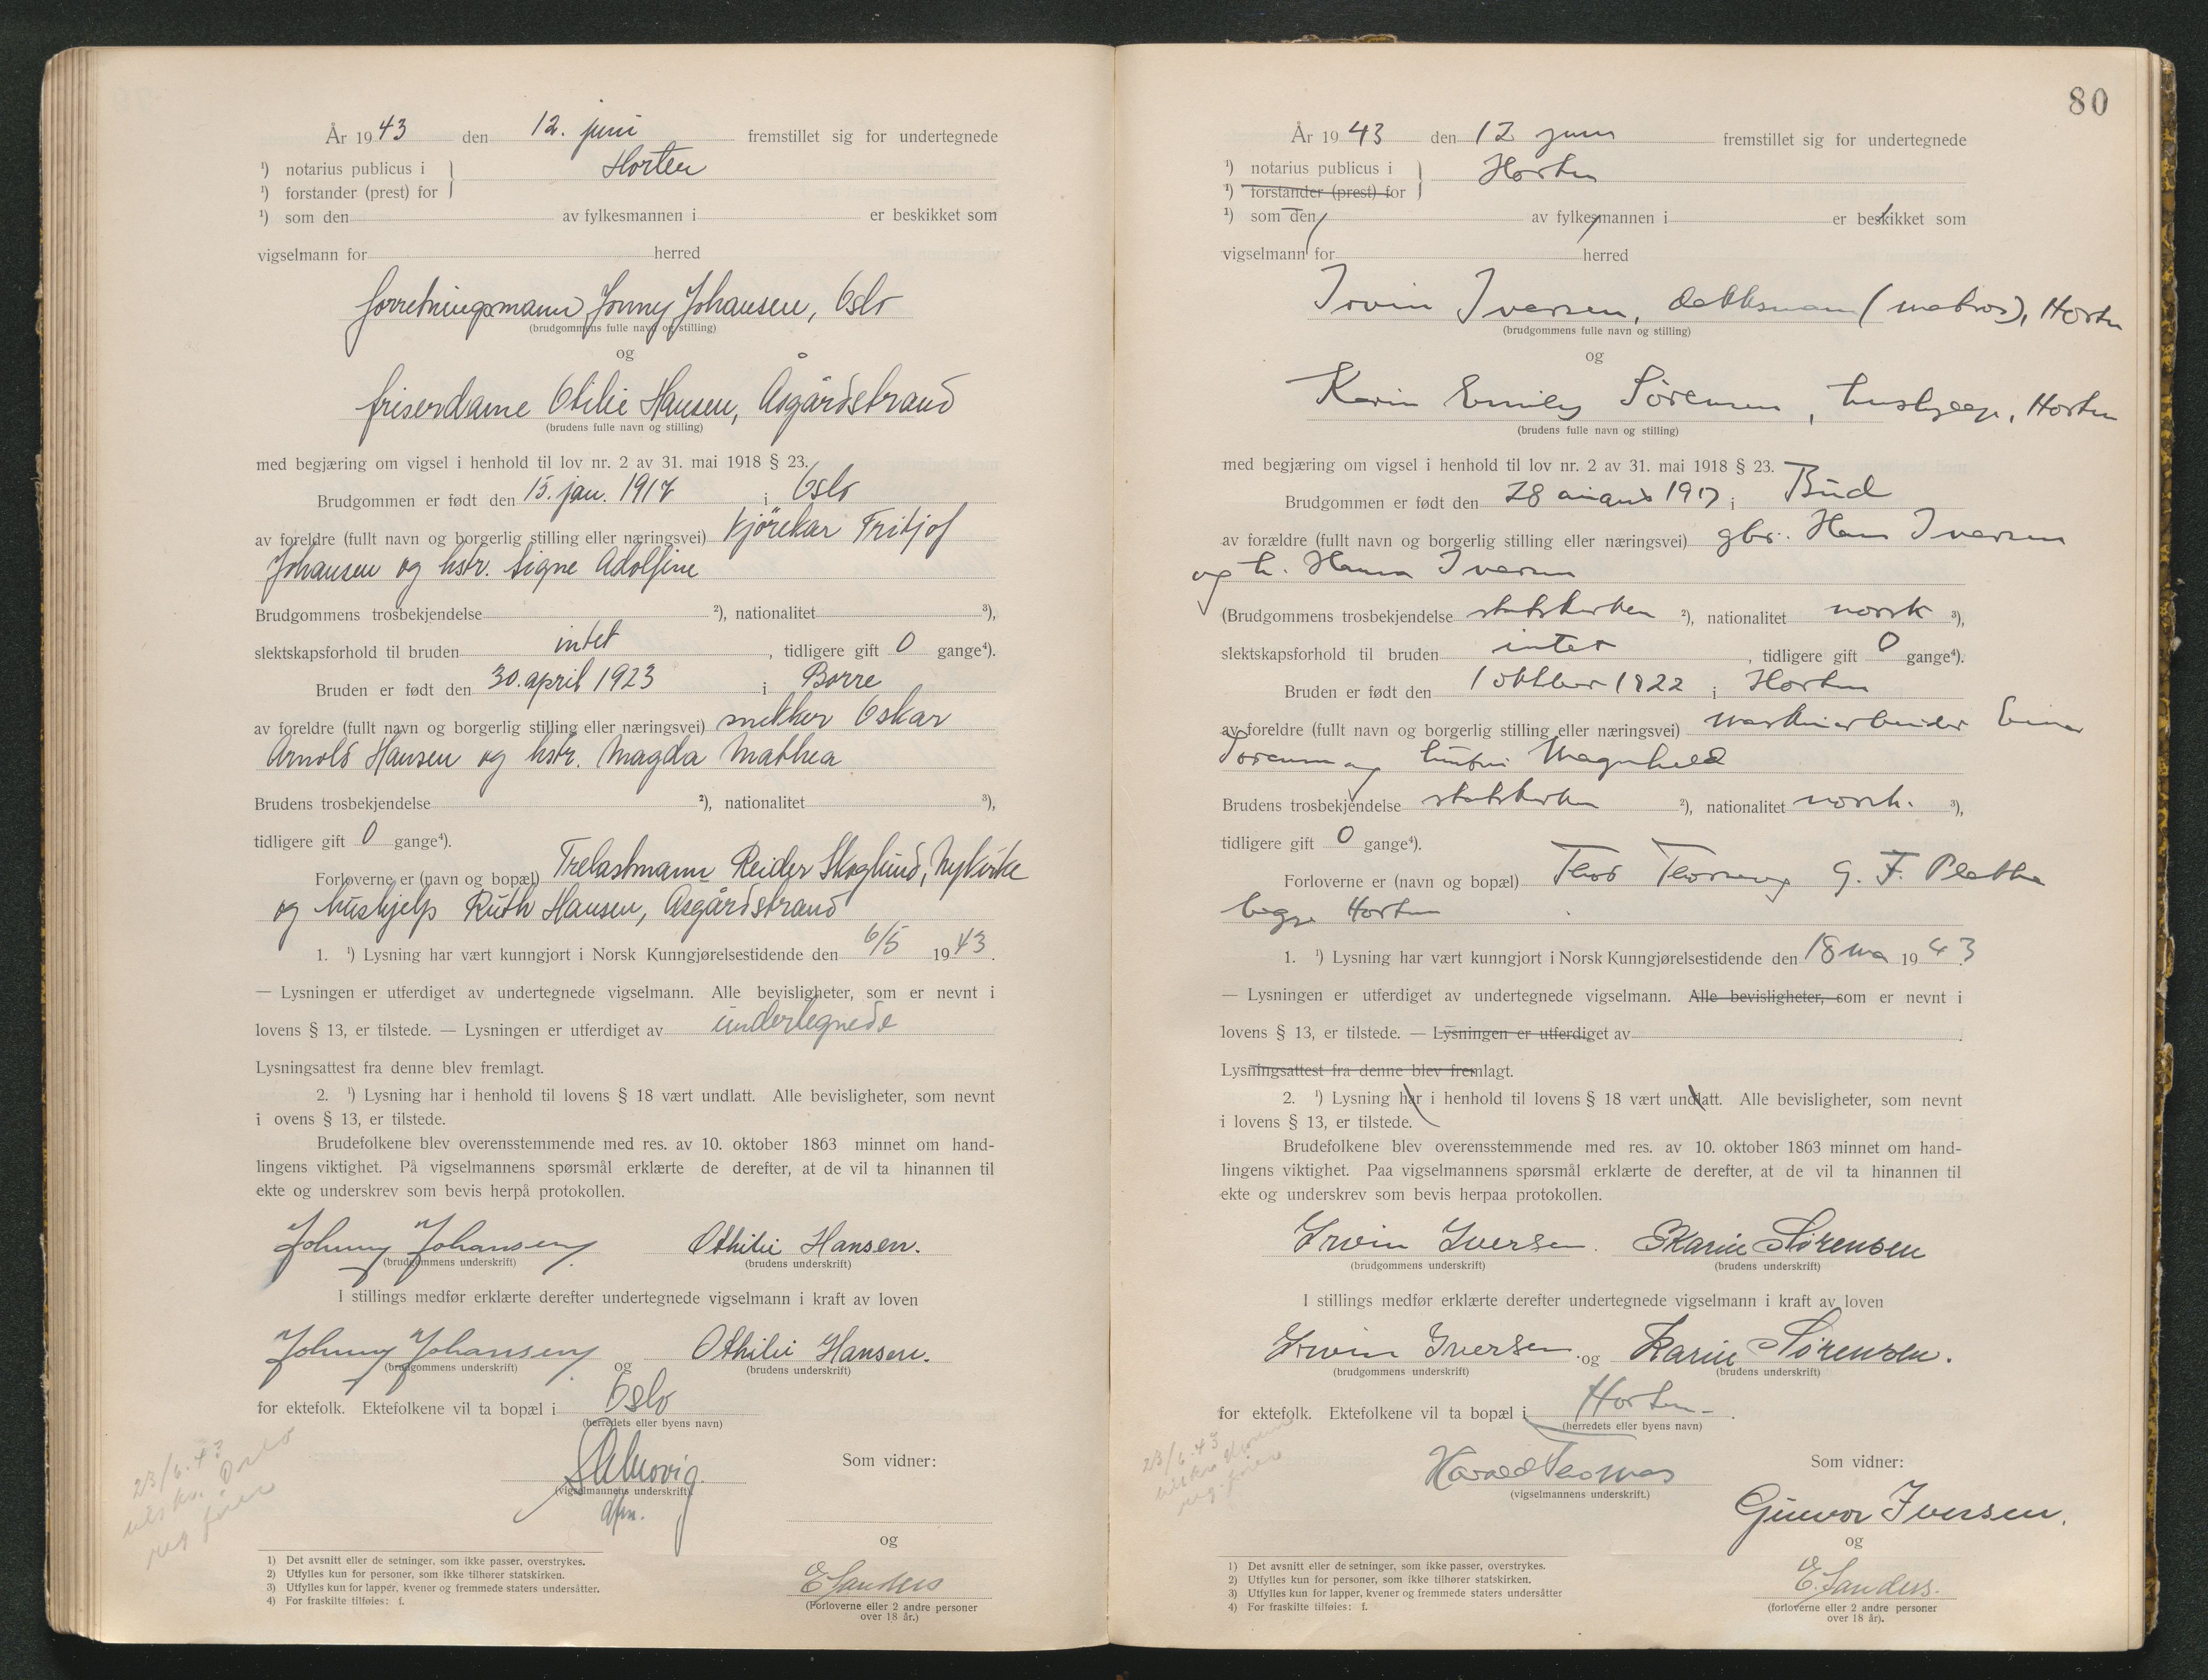 År 1943 den 12. juni fremstillet sig for undertegnede
¹) notarius publicus i } Horten
¹) forstander (prest) for
¹) som den av fylkesmannen i er beskikket som
vigselmann for herred
forretningsmann Jonny Johansen, Oslo
(brudgommens fulle navn og stilling)
og
friserdame Otilie Hansen, Åsgårdstrand
(brudens fulle navn og stilling)
med begjæring om vigsel i henhold til lov nr. 2 av 31. mai 1918 § 23.
Brudgommen er født den 15. jan. 1917 i Oslo
av foreldre (fullt navn og borgerlig stilling eller næringsvei) kjørekar Fritjof
Johansen og hstr. Signe Adolfine
Brudgommens trosbekjendelse ²), nationalitet ³),
slektskapsforhold til bruden intet, tidligere gift 0 gange⁴).
Bruden er født den 30. april 1923 i Borre
av foreldre (fullt navn og borgerlig stilling eller næringsvei) snekker Oskar
Arnold Hansen og hstr. Magda Mathea
Brudens trosbekjendelse ²), nationalitet ³),
tidligere gift 0 gange⁴).
Forloverne er (navn og bopæl) Trelastmann Reider Skoglund, Nykirke
og hushjelp Ruth Hansen, Åsgårdstrand
1. ¹) Lysning har vært kunngjort i Norsk Kunngjørelsestidende den 6/5 1943.
— Lysningen er utferdiget av undertegnede vigselmann. Alle bevisligheter, som er nevnt i
lovens § 13, er tilstede. — Lysningen er utferdiget av undertegnede
Lysningsattest fra denne blev fremlagt.
2. ¹) Lysning har i henhold til lovens § 18 vært undlatt. Alle bevisligheter, som nevnt
i ovens § 13, er tilstede.
Brudefolkene blev overensstemmende med res. av 10. oktober 1863 minnet om hand-
lingens viktighet. På vigselmannens spørsmål erklærte de derefter, at de vil ta hinannen til
ekte og underskrev som bevis herpå protokollen.
Johnny Johansen. Othilie Hansen.
(brudgommens underskrift) (brudens underskrift)
I stillings medfør erklærte derefter undertegnede vigselmann i kraft av loven
Johnny Johansen. og Othilie Hansen.
(brudgommens underskrift) (brudens underskrift)
for ektefolk. Ektefolkene vil ta bopæl i Oslo
(herredets eller byens navn)
Som vidner:
(vigselmannens underskrift).
23/6.43
Oslo
og
E Sanders
(Forloverne eller 2 andre personer
over 18 år.)
1) Det avsnitt eller de setninger, som ikke passer, overstrykes.
2) Utfylles kun for personer, som ikke tilhører statskirken.
3) Utfylles kun for lapper, kvener og fremmede staters undersåtter.
4) For fraskilte tilføies: f.
80
År 1943 den 12 juni fremstillet sig for undertegnede
¹) notarius publicus i } Horten
¹) forstander (prest) for
¹) som den av fylkesmannen i er beskikket som
vigselmann for herred
Irvin Iversen, dekksmann (matros), Horten
(brudgommens fulle navn og stilling)
og
Karin Emily Sørensen, hushjelp, Horten
(brudens fulle navn og stilling)
med begjæring om vigsel i henhold til lov nr. 2 av 31. mai 1918 § 23.
Brudgommen er født den 28 1917 i Bud
av forældre (fullt navn og borgerlig stilling eller næringsvei) gbr. Hans Iversen
og h. Hanna Iversen
(Brudgommens trosbekjendelse statskirken ²), nationalitet norsk ³),
slektskapsforhold til bruden intet, tidligere gift 0 gange⁴).
Bruden er født den 1 oktober 1922 i Horten
av foreldre (fullt navn og borgerlig stilling eller næringsvei) maskinarbeider Einar
Sørensen og hustru Magnhild
Brudens trosbekjendelse statskirken ²), nationalitet norsk. ³),
tidligere gift 0 gange⁴).
Forloverne er (navn og bopæl) Thor G. F. Plathe
begge Horten
1. ¹) Lysning har vært kunngjort i Norsk Kunngjørelsestidende den 18 mai 1943.
— Lysningen er utferdiget av undertegnede vigselmann. Alle bevisligheter, som er nevnt i
lovens § 13, er tilstede. — Lysningen er utferdiget av
Lysningsattest fra denne blev fremlagt.
2. ¹) Lysning har i henhold til lovens § 18 vært undlatt. Alle bevisligheter, som nevnt
i lovens § 13, er tilstede.
Brudefolkene blev overensstemmende med res. av 10. oktober 1863 minnet om hand-
lingens viktighet. Paa vigselmannens spørsmål erklærte de derefter, at de vil ta hinannen til
ekte og underskrev som bevis herpaa protokollen.
Irvin Iversen. Karin Sørensen
(brudgommens underskrift) (brudens underskrift)
I stillings medfør erklærte derefter undertegnede vigselmann i kraft av loven
Irvin Iversen og Karin Sørensen.
(brudgommens underskrift) (brudens underskrift)
for ektefolk. Ektefolkene vil ta bopæl i Horten.
(herredets eller byens navn)
Harald Thomas
(vigselmannens underskrift.)
23/6.43
Som vidner:
Gunvor Iversen.
og
E. Sanders.
(forloverne eller 2 andre personer
over 18 år).
1) Det avsnitt eller de setninger, som ikke passer, overstrykes.
2) Utfylles kun for personer, som ikke tilhører statskirken.
3) Utfylles kun for lapper, kvener og fremmede staters undersåtter
4) For fraskilte tilføies: f.